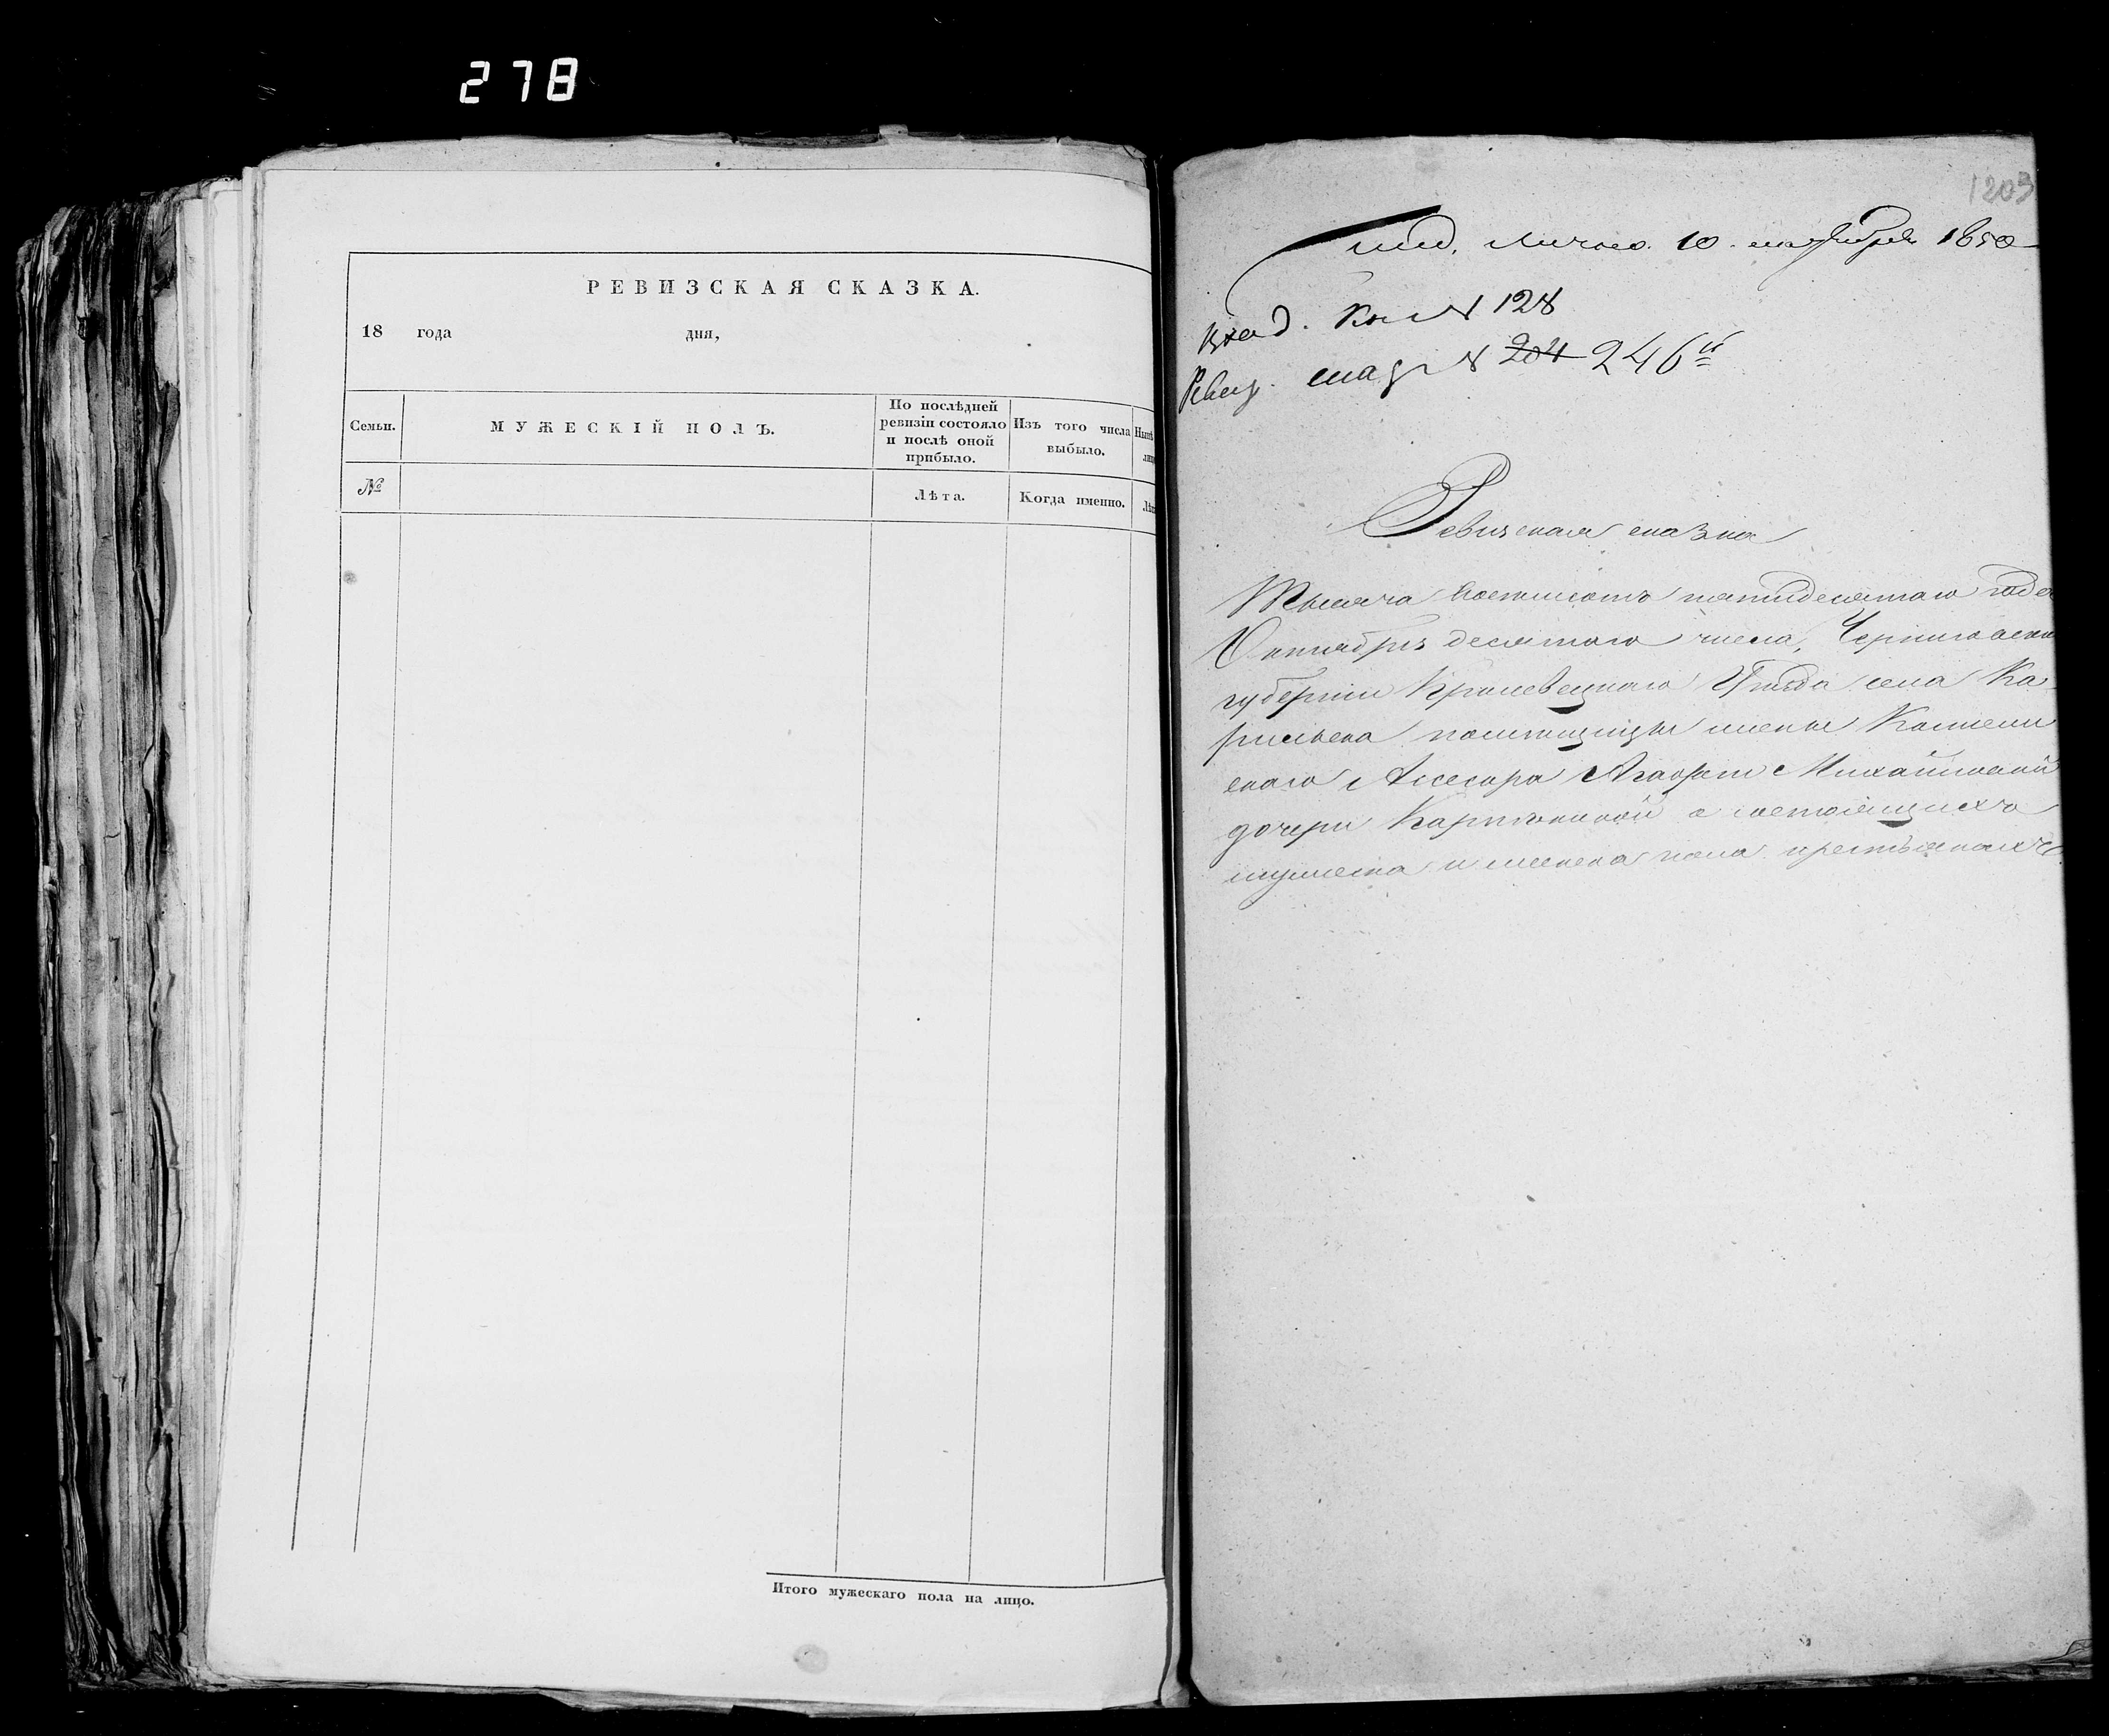 278
РЕВИЗСКАЯ СКАЗКА.
18 года дня,
Семьи.
МУЖЕСКІЙ ПОЛЪ.
По послѣдней
ревизіи состояло
и послѣ оной
прибыло.
Изъ того числа
выбыло.
№
Лѣта.
Когда именно.
Итого мужескаго пола на лицо.
1203
лично 10 октября 1850
Вход. Кн № 128
Ревиз. сказ № 204 246й
Ревизская сказка
Тысяча восемьсотъ пятидесятаго года
Октября десятого числа, Чернигаской
губерніи Кролевецкаго Уѣзда села Ка
рильска помѣщицы
скаго Асесора Михайловой
дочери о состоящихъ
мужеска и женска пола крестьянахъ